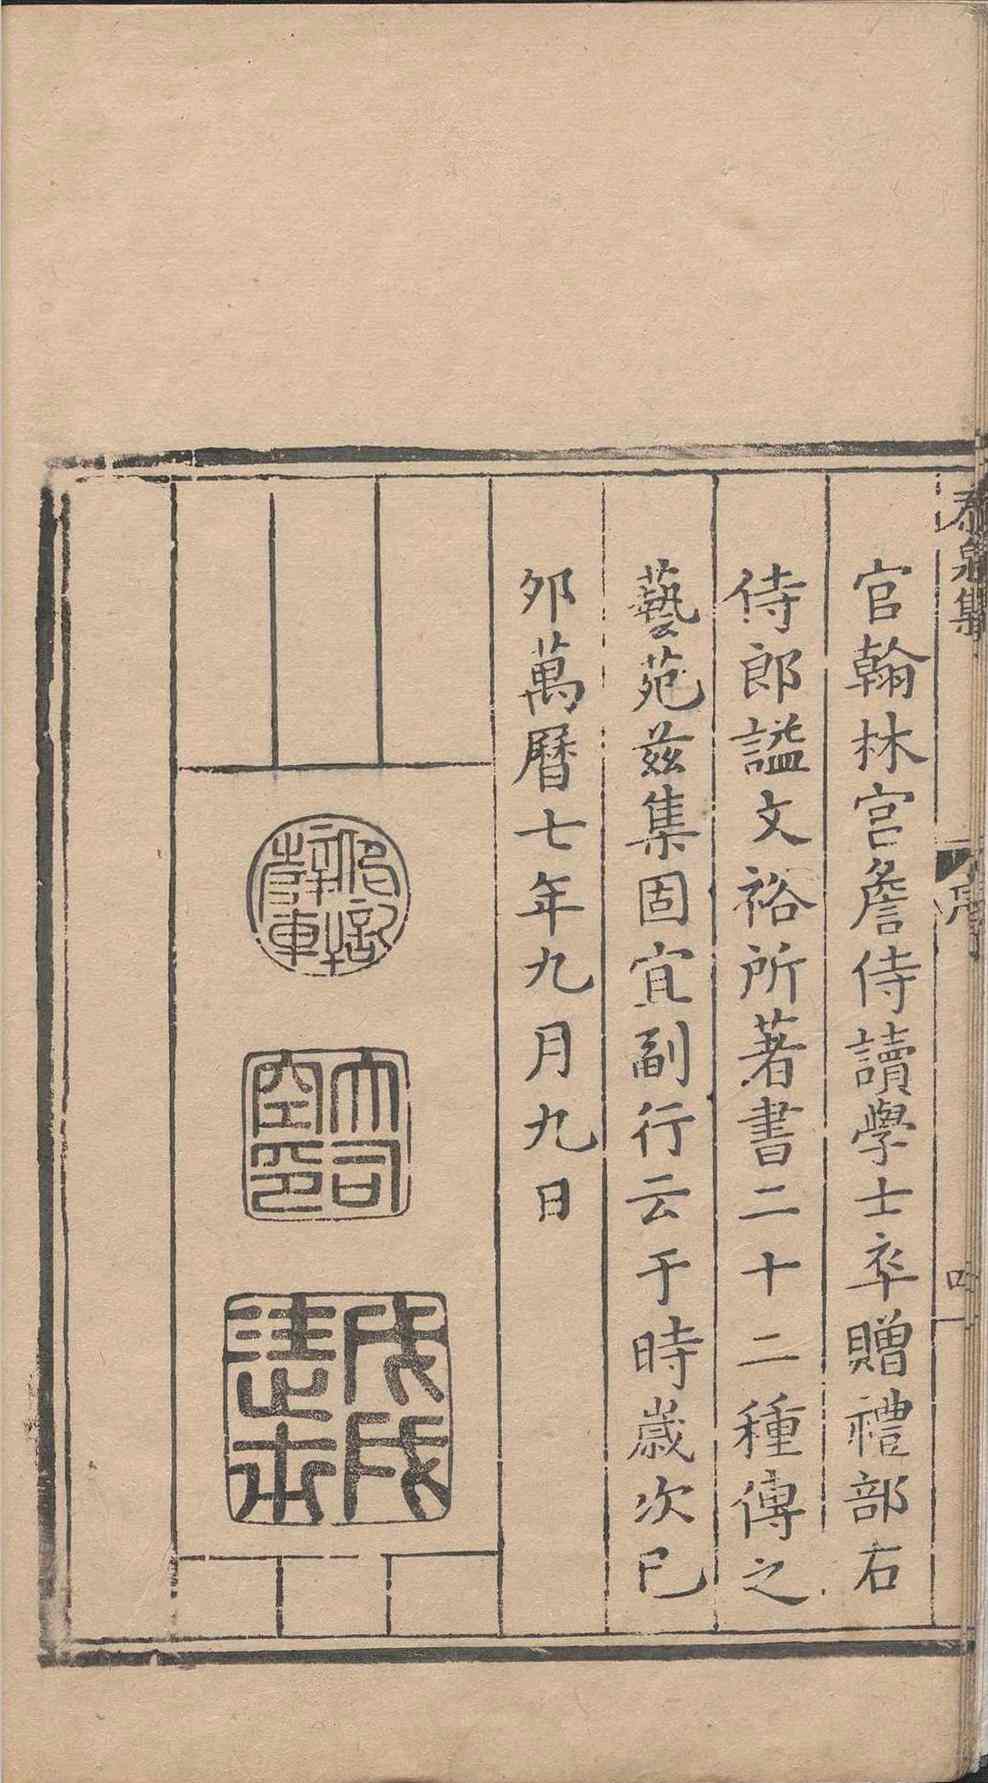 集
序
官翰林宫詹侍讀學士卒贈禮部右
侍郎謚文裕所著書二十二種傳之
藝苑兹集固宜副行云于時歲次已
夘萬曆七年九月九日
大司
空印
戊戌
進士